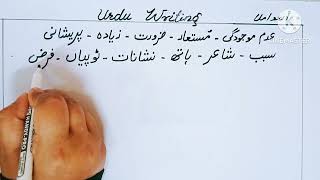 Urdu Writing
عدم موجودگی - مستعار - ضرورت - زیادہ - پریشانی
سبب - شاعر - ہاتھ - نشانات - ٹوپیاں - فرض